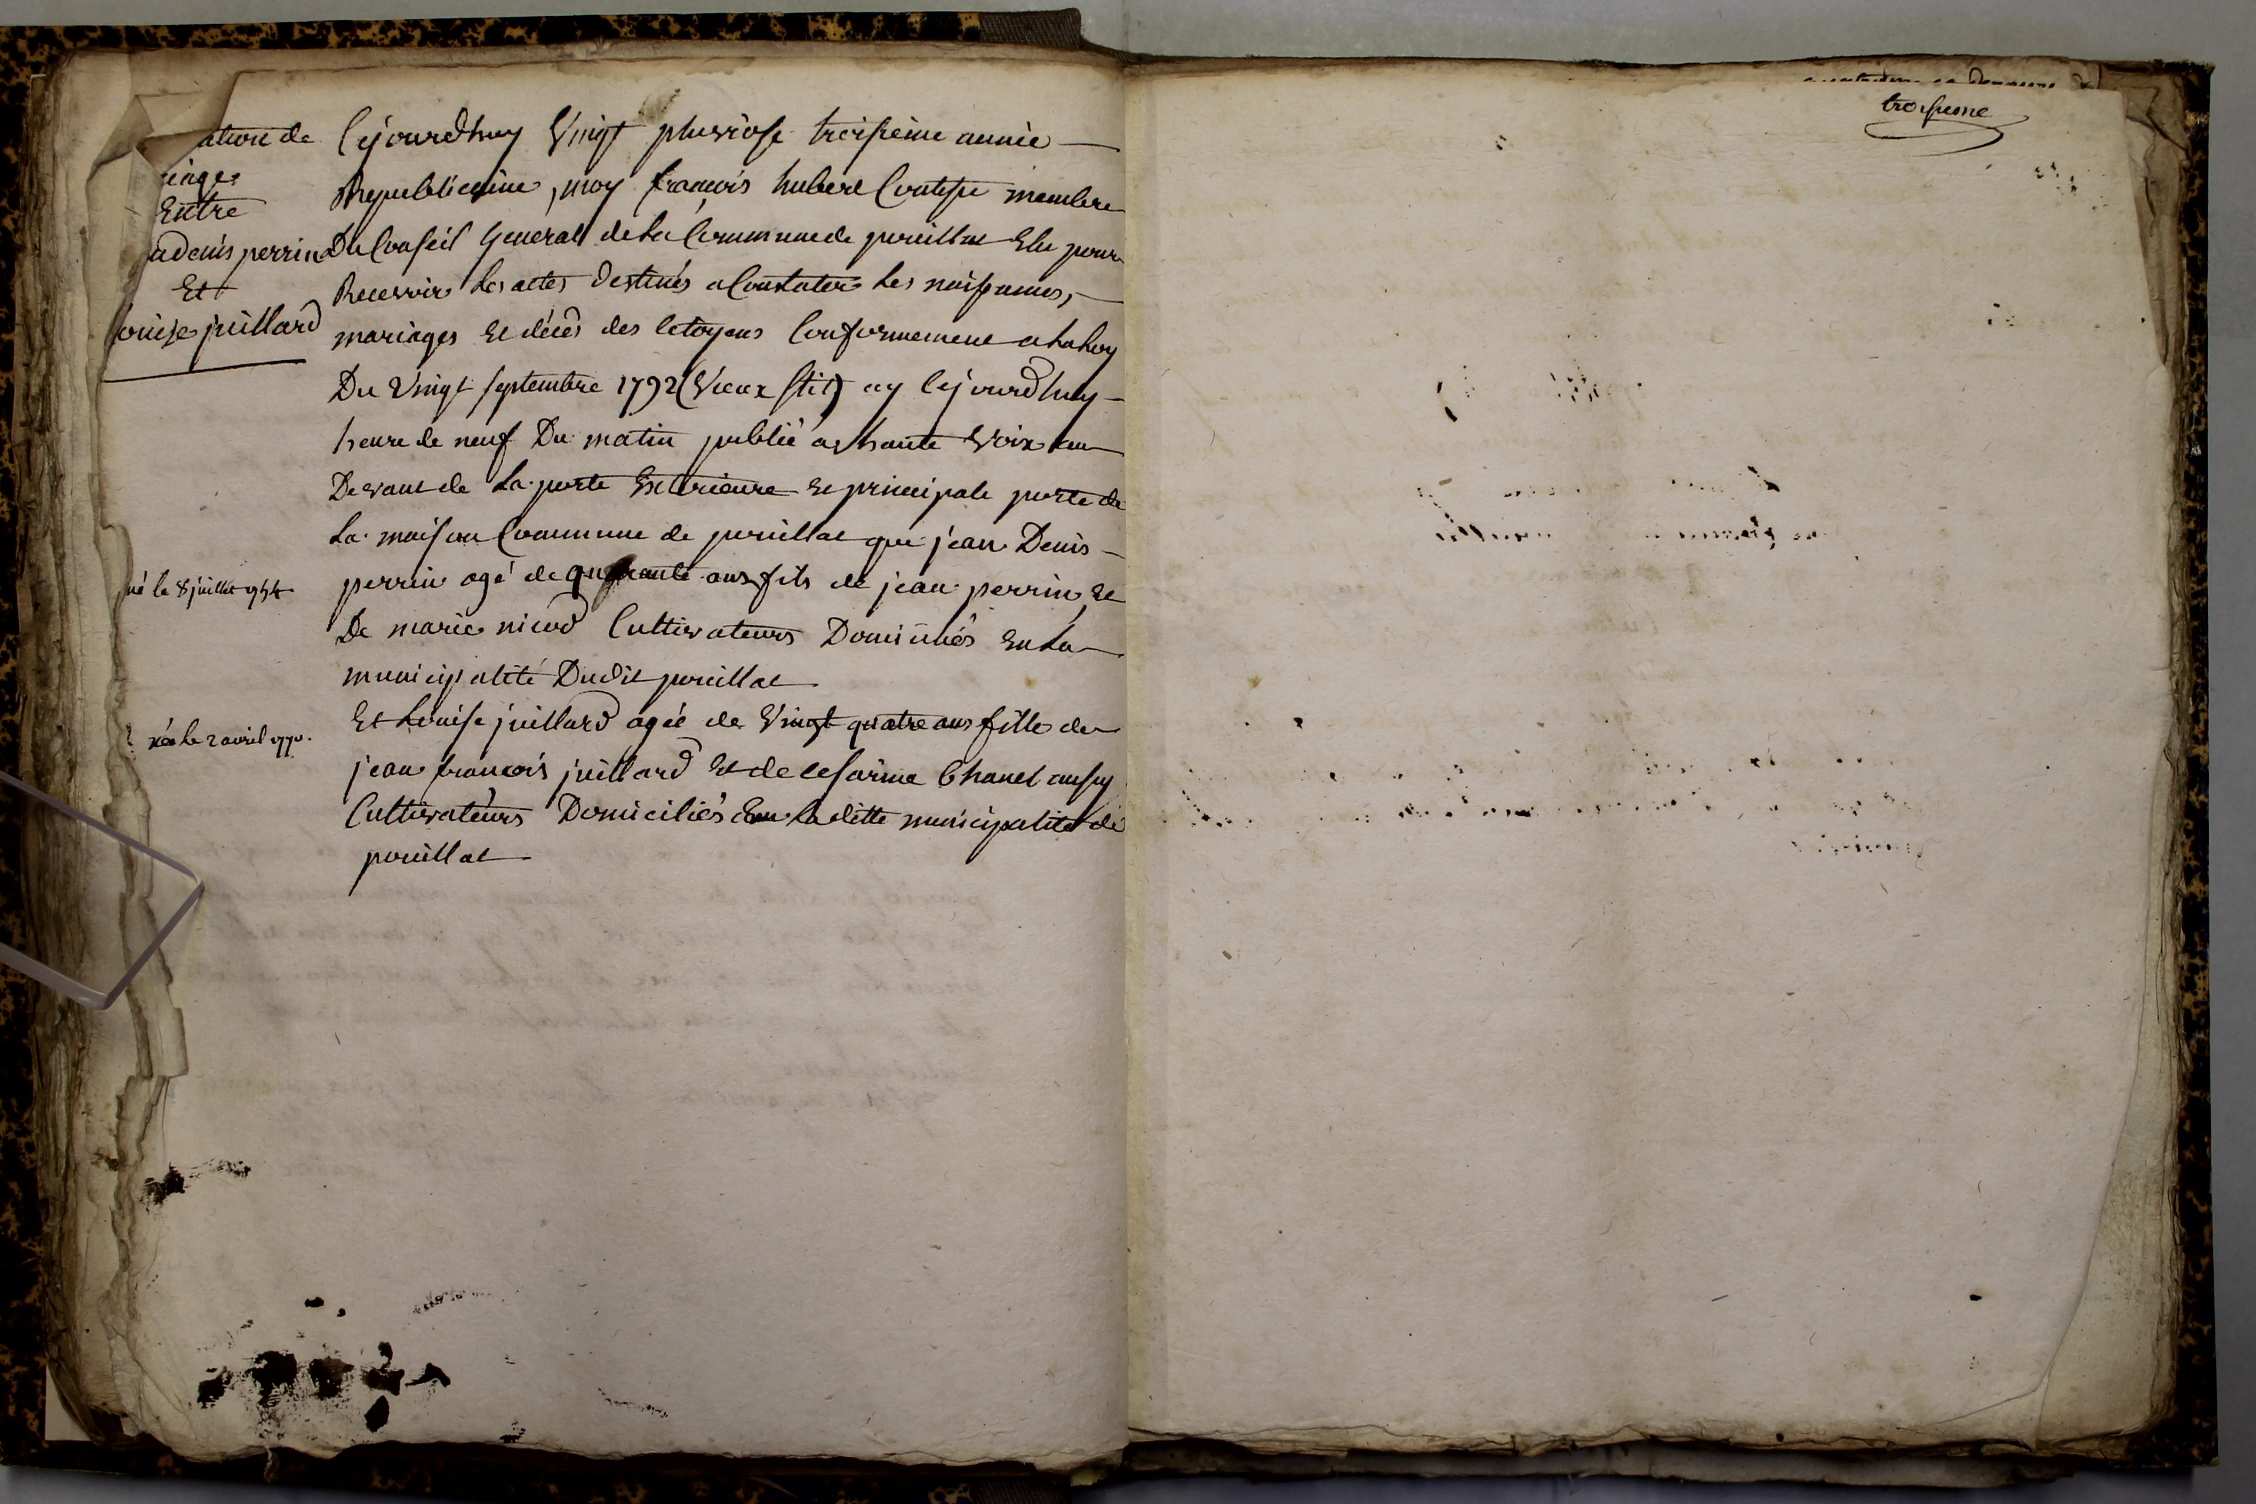 ation de
iage
Entre
denis perrin
Et
ouise juillard
Cejourdhuy Vingt pluviose troisieme année
Republicaine, moy françois hubert membre
Du Conseil General de la Commune de pouillat Elu pour
Recevoir les actes destinés a Constater les naissances,
mariages et décès des Citoyens Conformement a la loy
Du Vingt septembre 1792 (Vieux stil) ay cejourdhuy
heure de neuf Du matin publié a haute Voix au
Devant de la porte Exterieure et principale porte de
la maison Commune de pouillat que jean Denis
né le 8 juillet 1754
perrin agé de quarante ans fils de jean perrin et
De marie nicod Cultivateurs Domiciliés En la
municipalité Dudit pouillat
née le 2 avril 1770.
Et Louise juillard agée de Vingt quatre ans fille de
jean françois juillard Et de Chanel aussy
Cultivateurs Domiciliés En laditte municipalité de
pouillat
troisieme